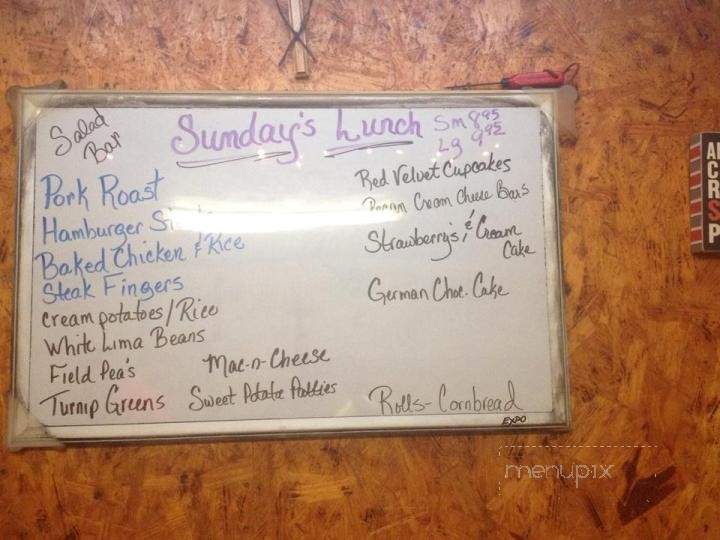 Salad
Bar
Sunday's Lunch
Sm 8.95
Lg 9.95
Pork Roast
Hamburger
Baked Chicken & Rice
Steak Fingers
cream potatoes/Rice
White Lima Beans
Field Pea's
Turnip Greens
Mac-n-Cheese
Sweet Potato Patties
Red Velvet Cupcakes
Cream Cheese Bars
Strawberry's & Cream
Cake
German Choc. Cake
Rolls-Cornbread
EXPO
menupix